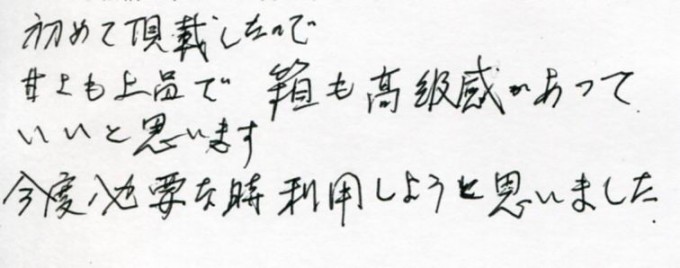 初めて頂戴したので
甘さも上品で 箱も高級感があって
いいと思います
今度必要な時利用しようと思いました